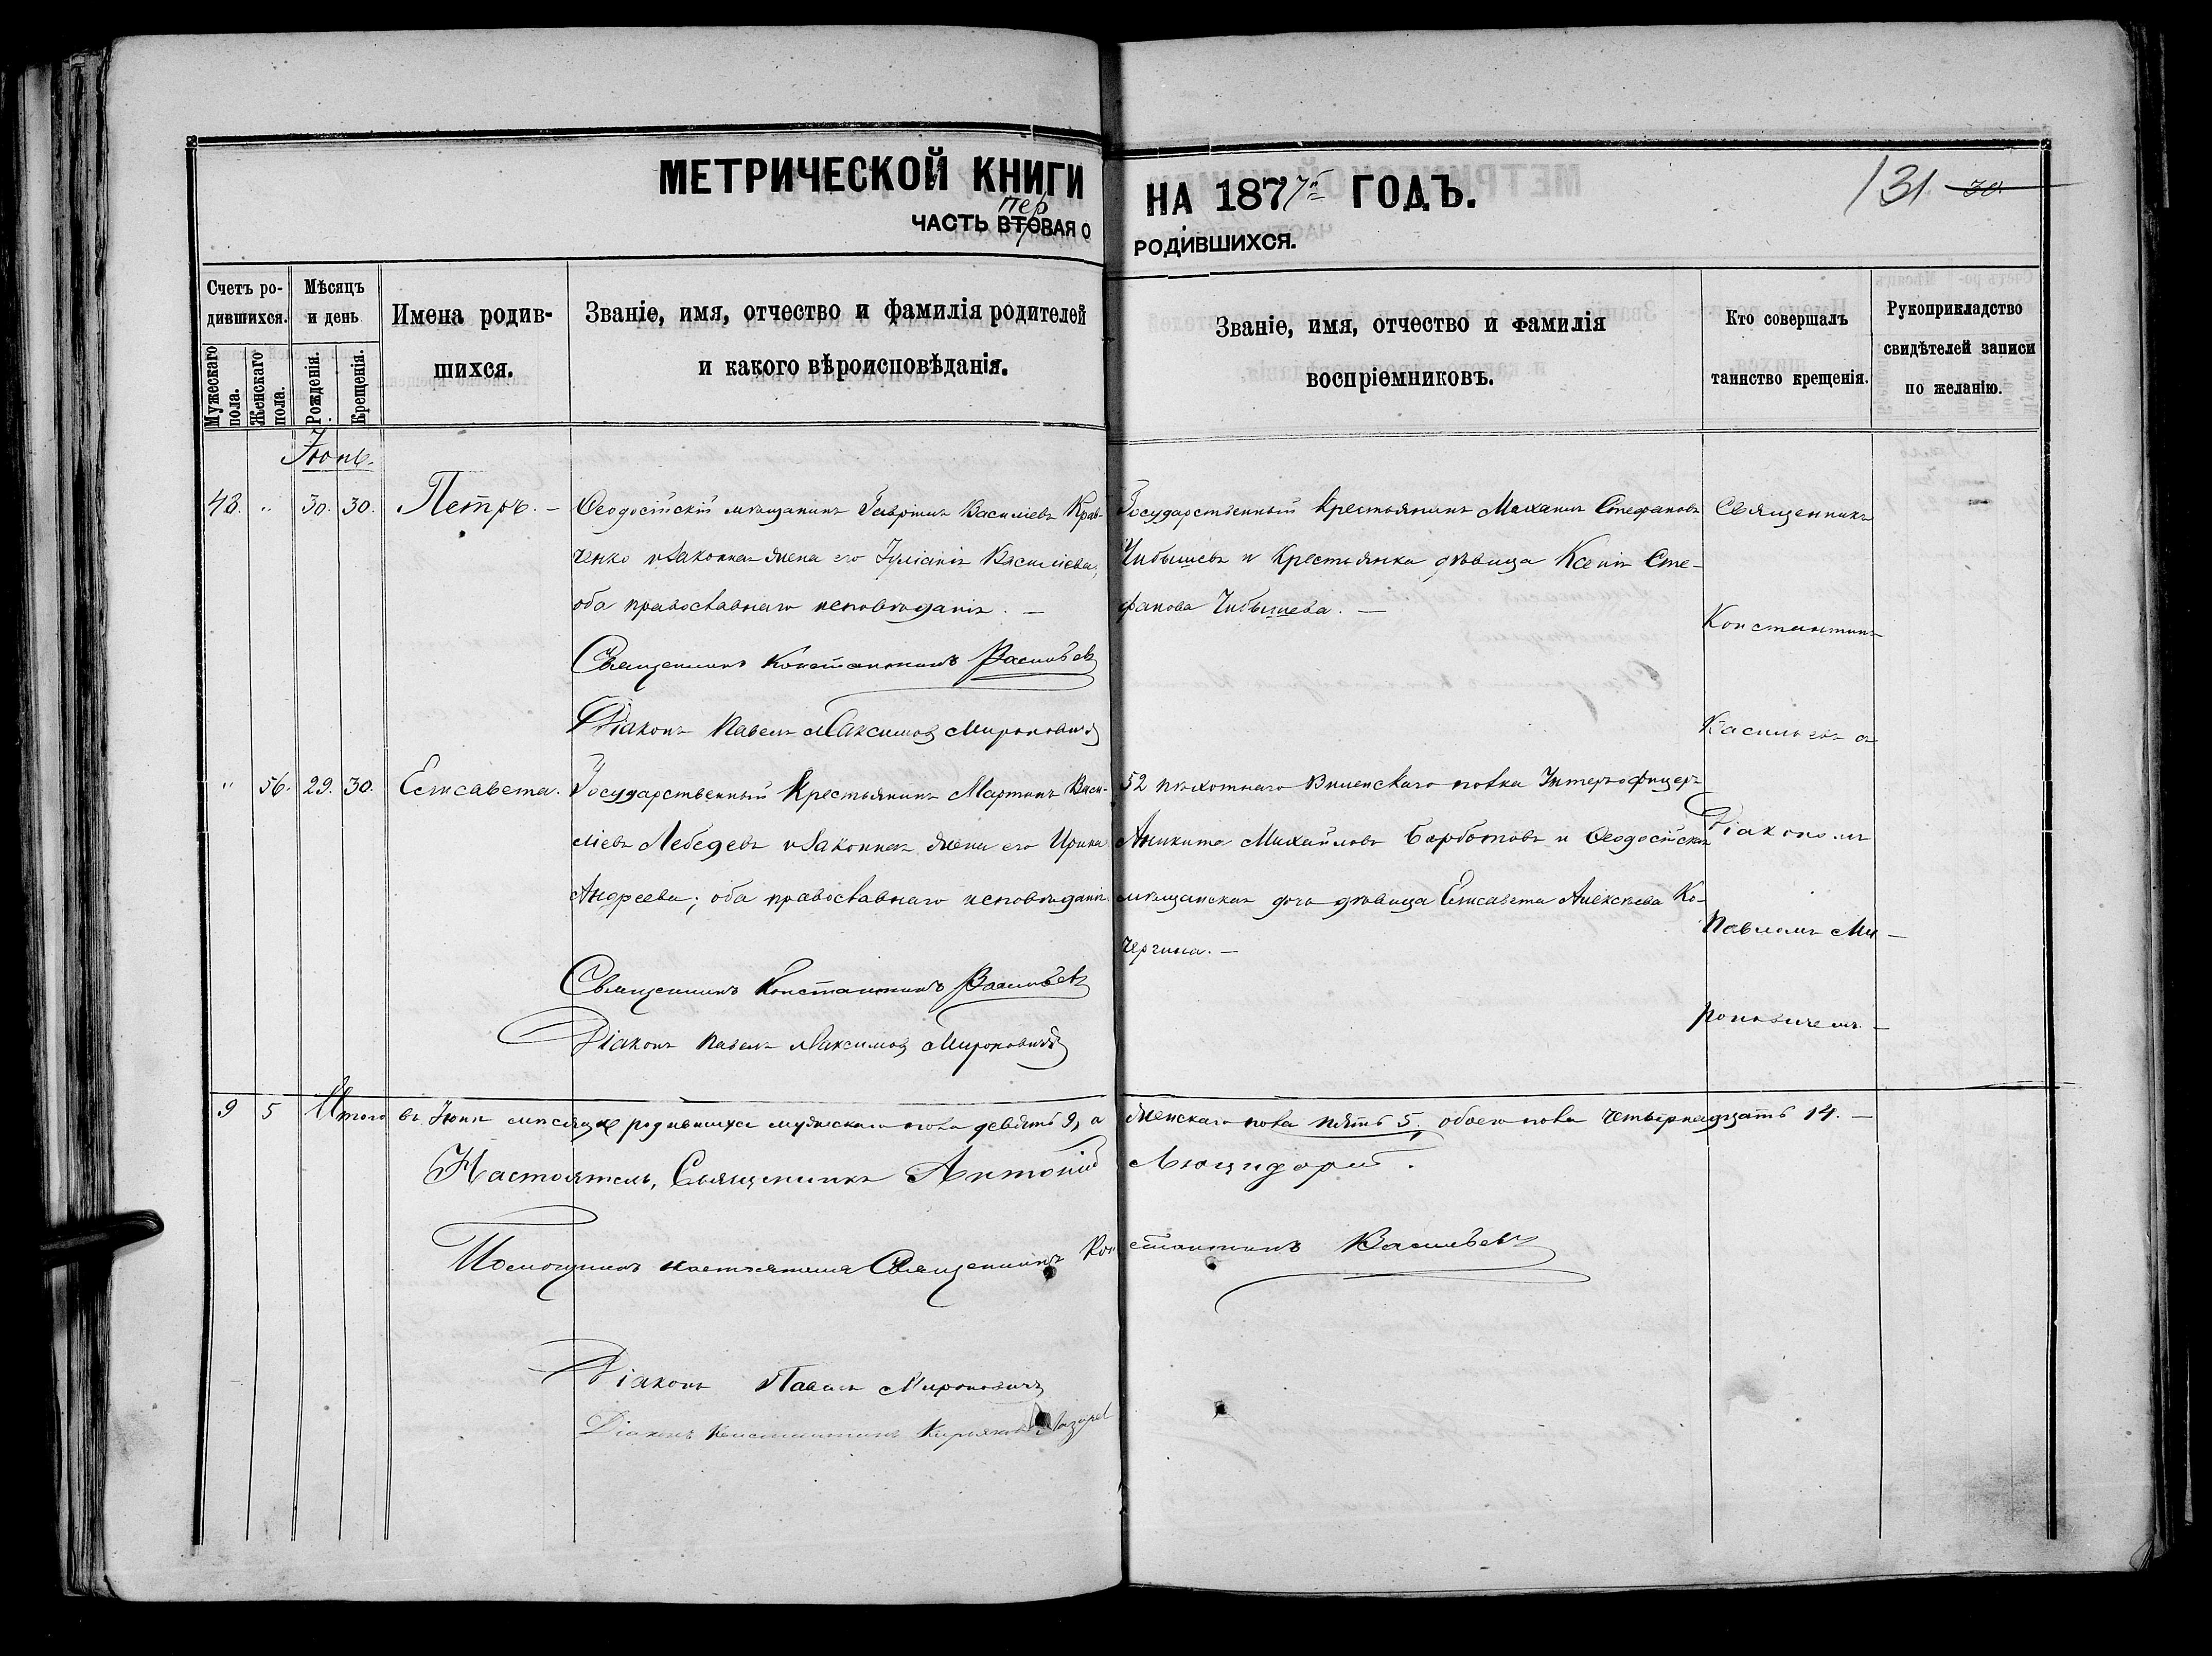 МЕТРИЧЕСКОЙ КНИГИ НА 1877й ГОДЪ.
131 30.
пер
ЧАСТЬ ВТОРАЯ О РОДИВШИХСЯ.
Счетъ родившихся.
Мужескаго пола.
Женскаго пола.
Мѣсяцъ и день
Рожденія.
Крещенія.
Имена родившихся.
Званіе, имя, отчество и фамилія родителей
и какого вѣроисповѣданія.
Званіе, имя, отчество и фамилія
воспріемниковъ.
Кто совершалъ
таинство крещенія.
Рукоприкладство
свидѣтелей записи
по желанію.
Іюнь.
43. " 30. 30. Петръ. –
Ѳеодосійскій мѣщанинъ Гавріилъ Васильевъ Крав-
ченко и законная жена его Іуліанія Васильева,
оба православнаго исповѣданія. –
Священникъ Константинъ Васильевъ
Діаконъ Павелъ Максимовъ Мироновичъ
Государственный Крестьянинъ Михаилъ Стефановъ
Чибышевъ и Крестьянка дѣвица Ксенія Сте-
фанова Чибышева. –
Священникъ
Константинъ
Васильевъ съ
Діакономъ
Павломъ Ми-
роновичемъ. –
" 56. 29. 30. Елисавета.
Государственный Крестьянинъ Мартинъ Васи-
ліевъ Лебедевъ и законная жена его Ирина
Андреева; оба православнаго исповѣданія.
Священникъ Константинъ Васильевъ
Діаконъ Павелъ Максимовъ Мироновичъ
52 пѣхотнаго Виленскаго полка Унтеръ-офицеръ
Аникита Михайловъ Барботовъ и Ѳеодосійская
мѣщанская дочь дѣвица Елисавета Алексѣева Ко-
чергина. –
9 5 Итого въ Іюнѣ мѣсяцѣ родившихся мужескаго пола девять 9, а женскаго пола пять 5, обоего пола четырнадцать 14. –
Настоятель, Священникъ Антоній
Помощникъ настоятеля Священникъ Константинъ Васильевъ
Діаконъ Павелъ Мироновичъ
Діаконъ Константинъ